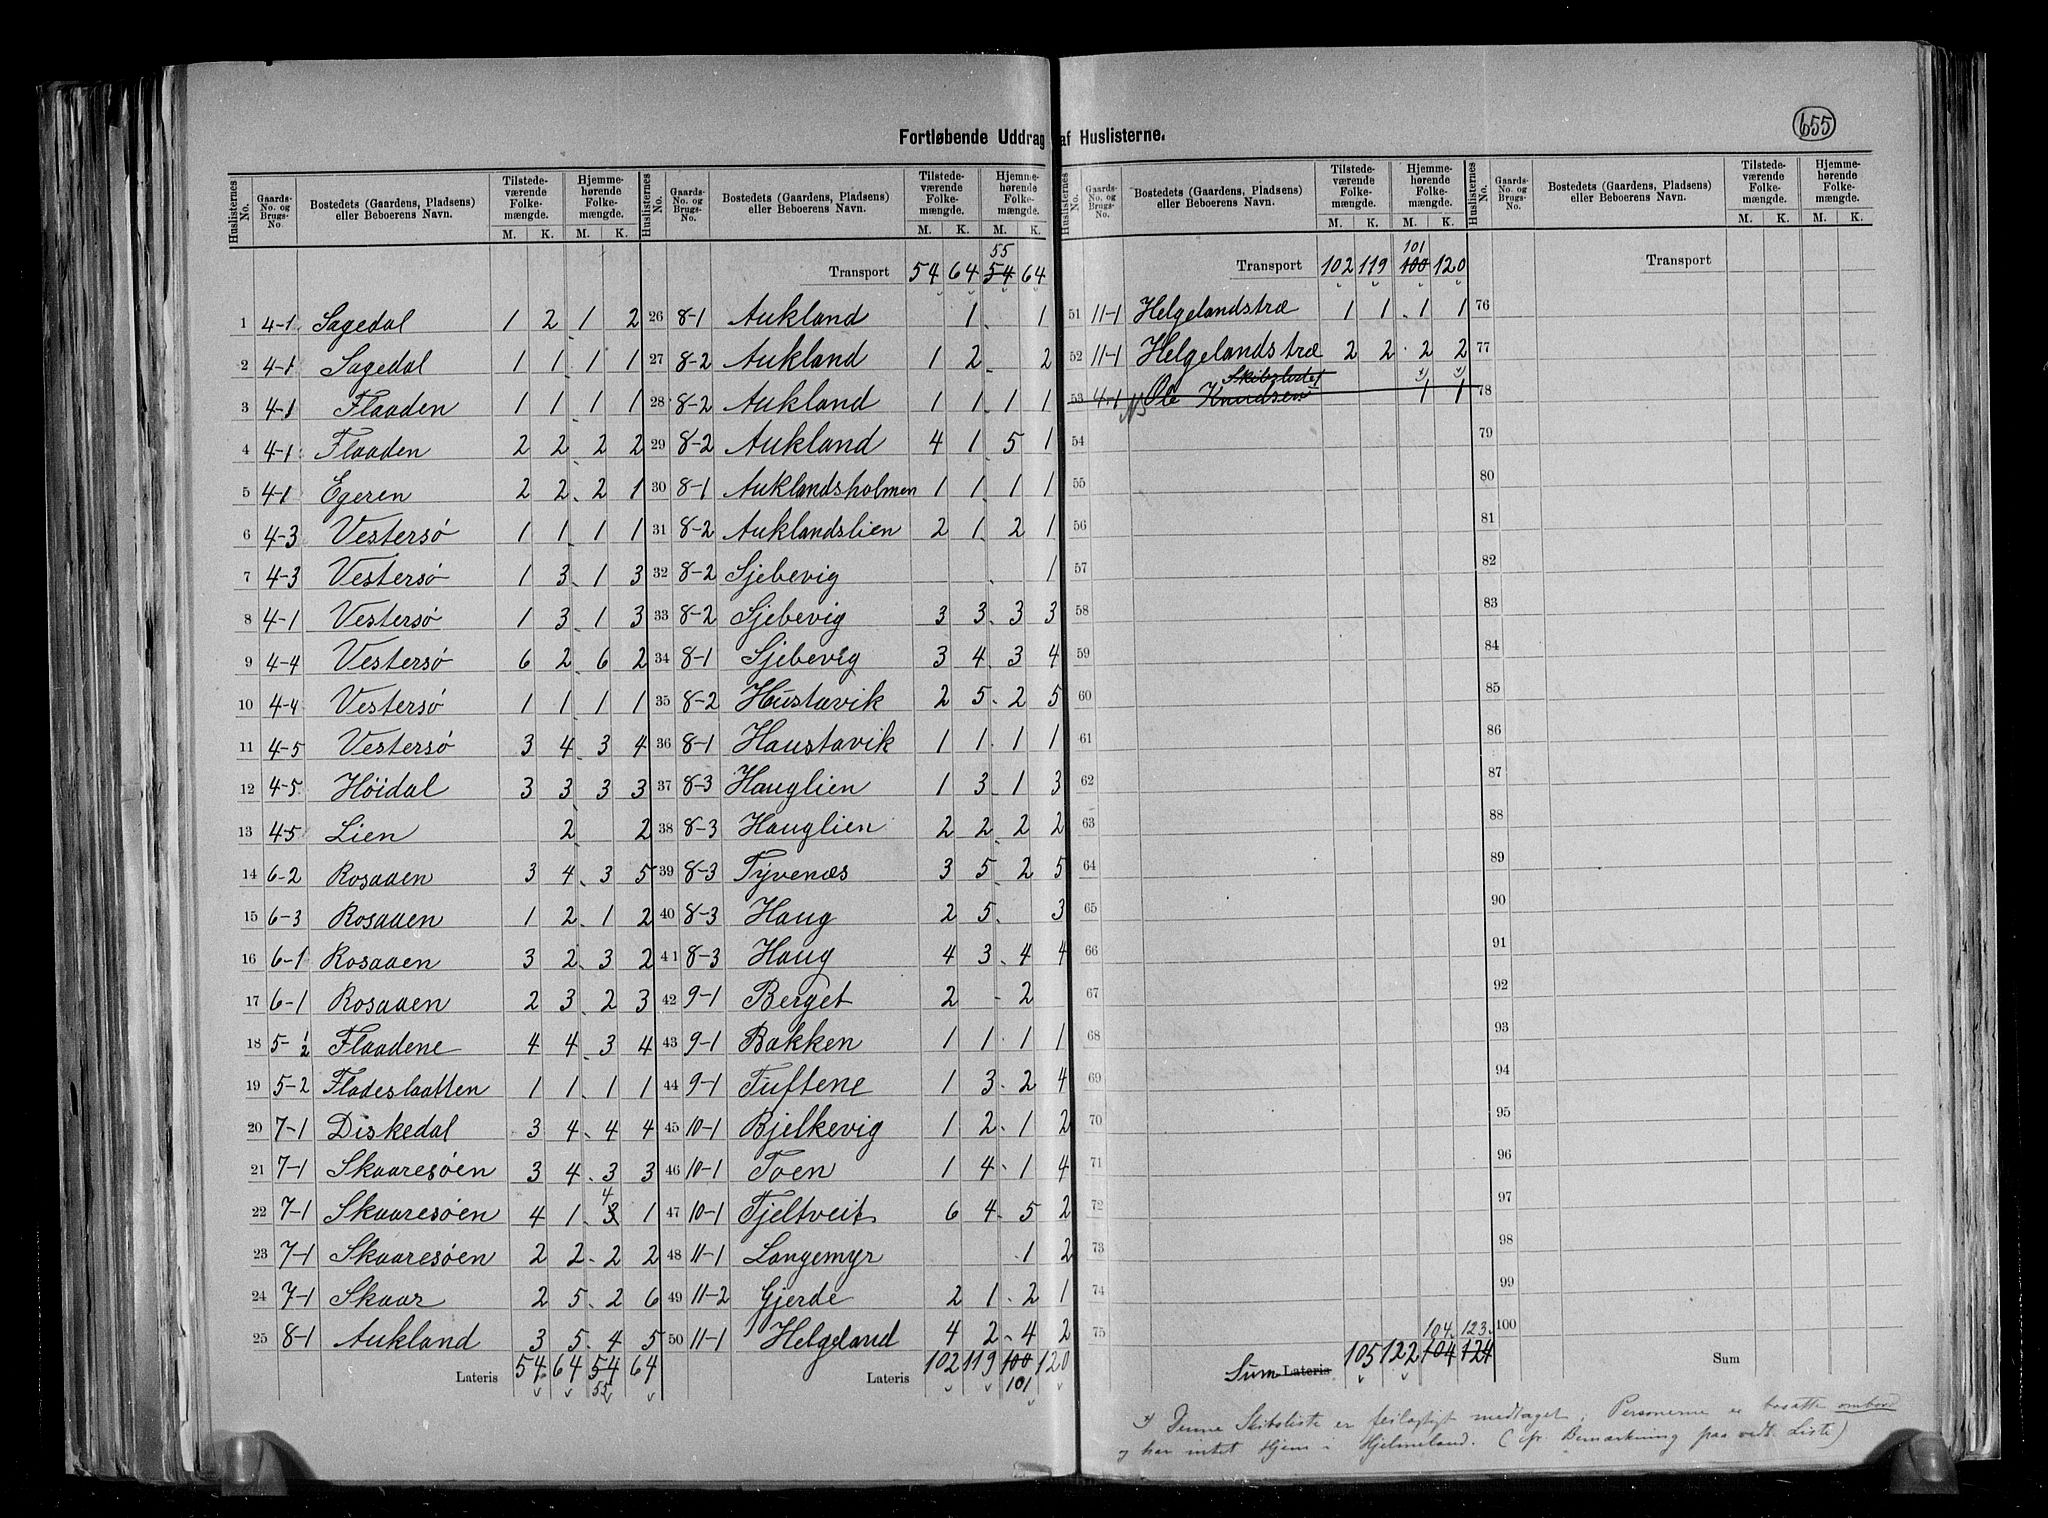 655
Fortløbende Uddrag af Huslisterne.
Huslisternes No. | Gaards-No. og Brugs-No | Bostedets (Gaardens, Pladsens) eller Beboerens Navn. | Tilstedeværende Folkemængde. M. K. | Hjemmehørende Folkemængde. M. K.
1 4-1 Sagedal 1 2 1 2
2 4-1 Sagedal 1 1 1 1
3 4-1 Flaaden 1 1 1 1
4 4-1 Flaaden 2 2 2 2
5 4-1 Egeren 2 2 2 1
6 4-3 Vestersø 1 1 1 1
7 4-3 Vestersø 1 3 1 3
8 4-1 Vestersø 1 3 1 3
9 4-4 Vestersø 6 2 6 2
10 4-4 Vestersø 1 1 1 1
11 4-5 Vestersø 3 4 3 4
12 4-5 Høidal 3 3 3 3
13 4-5 Lien 2 2
14 6-2 Rosaaen 3 4 3 5
15 6-3 Rosaaen 1 2 1 2
16 6-1 Rosaaen 3 2 3 2
17 6-1 Rosaaen 2 3 2 3
18 5-1/2 Flaadene 4 4 3 4
19 5-2 Fladeslaatten 1 1 1 1
20 7-1 Diskedal 3 4 4 4
21 7-1 Skaaresøen 3 4 3 3
22 7-1 Skaaresøen 4 1 3 4 1
23 7-1 Skaaresøen 2 2 2 2
24 7-1 Skaar 2 5 2 6
25 8-1 Aukland 3 5 4 5
Lateris 54 64 54 55 64
Huslisternes No. | Gaards-No. og Brugs-No. | Bostedets (Gaardens, Pladsens) eller Beboerens Navn. | Tilstedeværende Folkemængde. M. K. | Hjemmehørende Folkemængde. M. K.
Transport 54 64 54 55 64
26 8-1 Aukland 1 1
27 8-2 Aukland 1 2 2
28 8-2 Aukland 1 1 1 1
29 8-2 Aukland 4 1 5 1
30 8-1 Auklandsholmen 1 1 1 1
31 8-2 Auklandslien 2 1 2 1
32 8-2 Sjebevig 1
33 8-2 Sjebevig 3 3 3 3
34 8-1 Sjebevig 3 4 3 4
35 8-2 Hustavik 2 5 2 5
36 8-1 Haustavik 1 1 1 1
37 8-3 Hauglien 1 3 1 3
38 8-3 Hauglien 2 2 2 2
39 8-3 Tyvenæs 3 5 2 5
40 8-3 Haug 2 5 3
41 8-3 Haug 4 3 4 4
42 9-1 Berget 2 - 2
43 9-1 Bakken 1 1 1 1
44 9-1 Tuftene 1 3 2 4
45 10-1 Bjelkevig 1 2 1 2
46 10-1 Toen 1 4 1 4
47 10-1 Fjeltveit 6 4 5 2
48 11-1 Langemyr 1 2
49 11-2 Gjerde 2 1 2 1
50 11-1 Helgeland 4 2 4 2
Lateris 102 119 100 101 120
Huslisternes No. | Gaards-No. og Brugs-No. | Bostedets (Gaardens, Pladsens) eller Beboerens Navn. | Tilstedeværende Folkemængde. M. K. | Hjemmehørende Folkemængde. M. K.
Transport 102 119 100 101 120
51 11-1 Helgelandstræ 1 1 1 1
52 11-1 Helgelandstræ 2 2 2 2
Skibsliste 1
53 4-1 Ole Knudsen 1 1
54
55
56
57
58
59
60
61
62
63
64
65
66
67
68
69
70
71
72
73
74
75
104 123
Sum Lateris 105 122 104 124
Huslisternes No. | Gaards-No. og Brugs-No. | Bostedets (Gaardens, Pladsens) eller Beboerens Navn. | Tilstedeværende Folkemængde. M. K. | Hjemmehørende Folkemængde. M. K.
Transport
76
77
78
79
80
81
82
83
84
85
86
87
88
89
90
91
92
93
94
95
96
97
98
99
100
Sum
*) Denne Skibsliste er feilagtigt medtaget; Personerne er bosatte ombord
og har intet Hjem i Hjelmeland. (cfr. Bemærkning paa vedk. Liste)